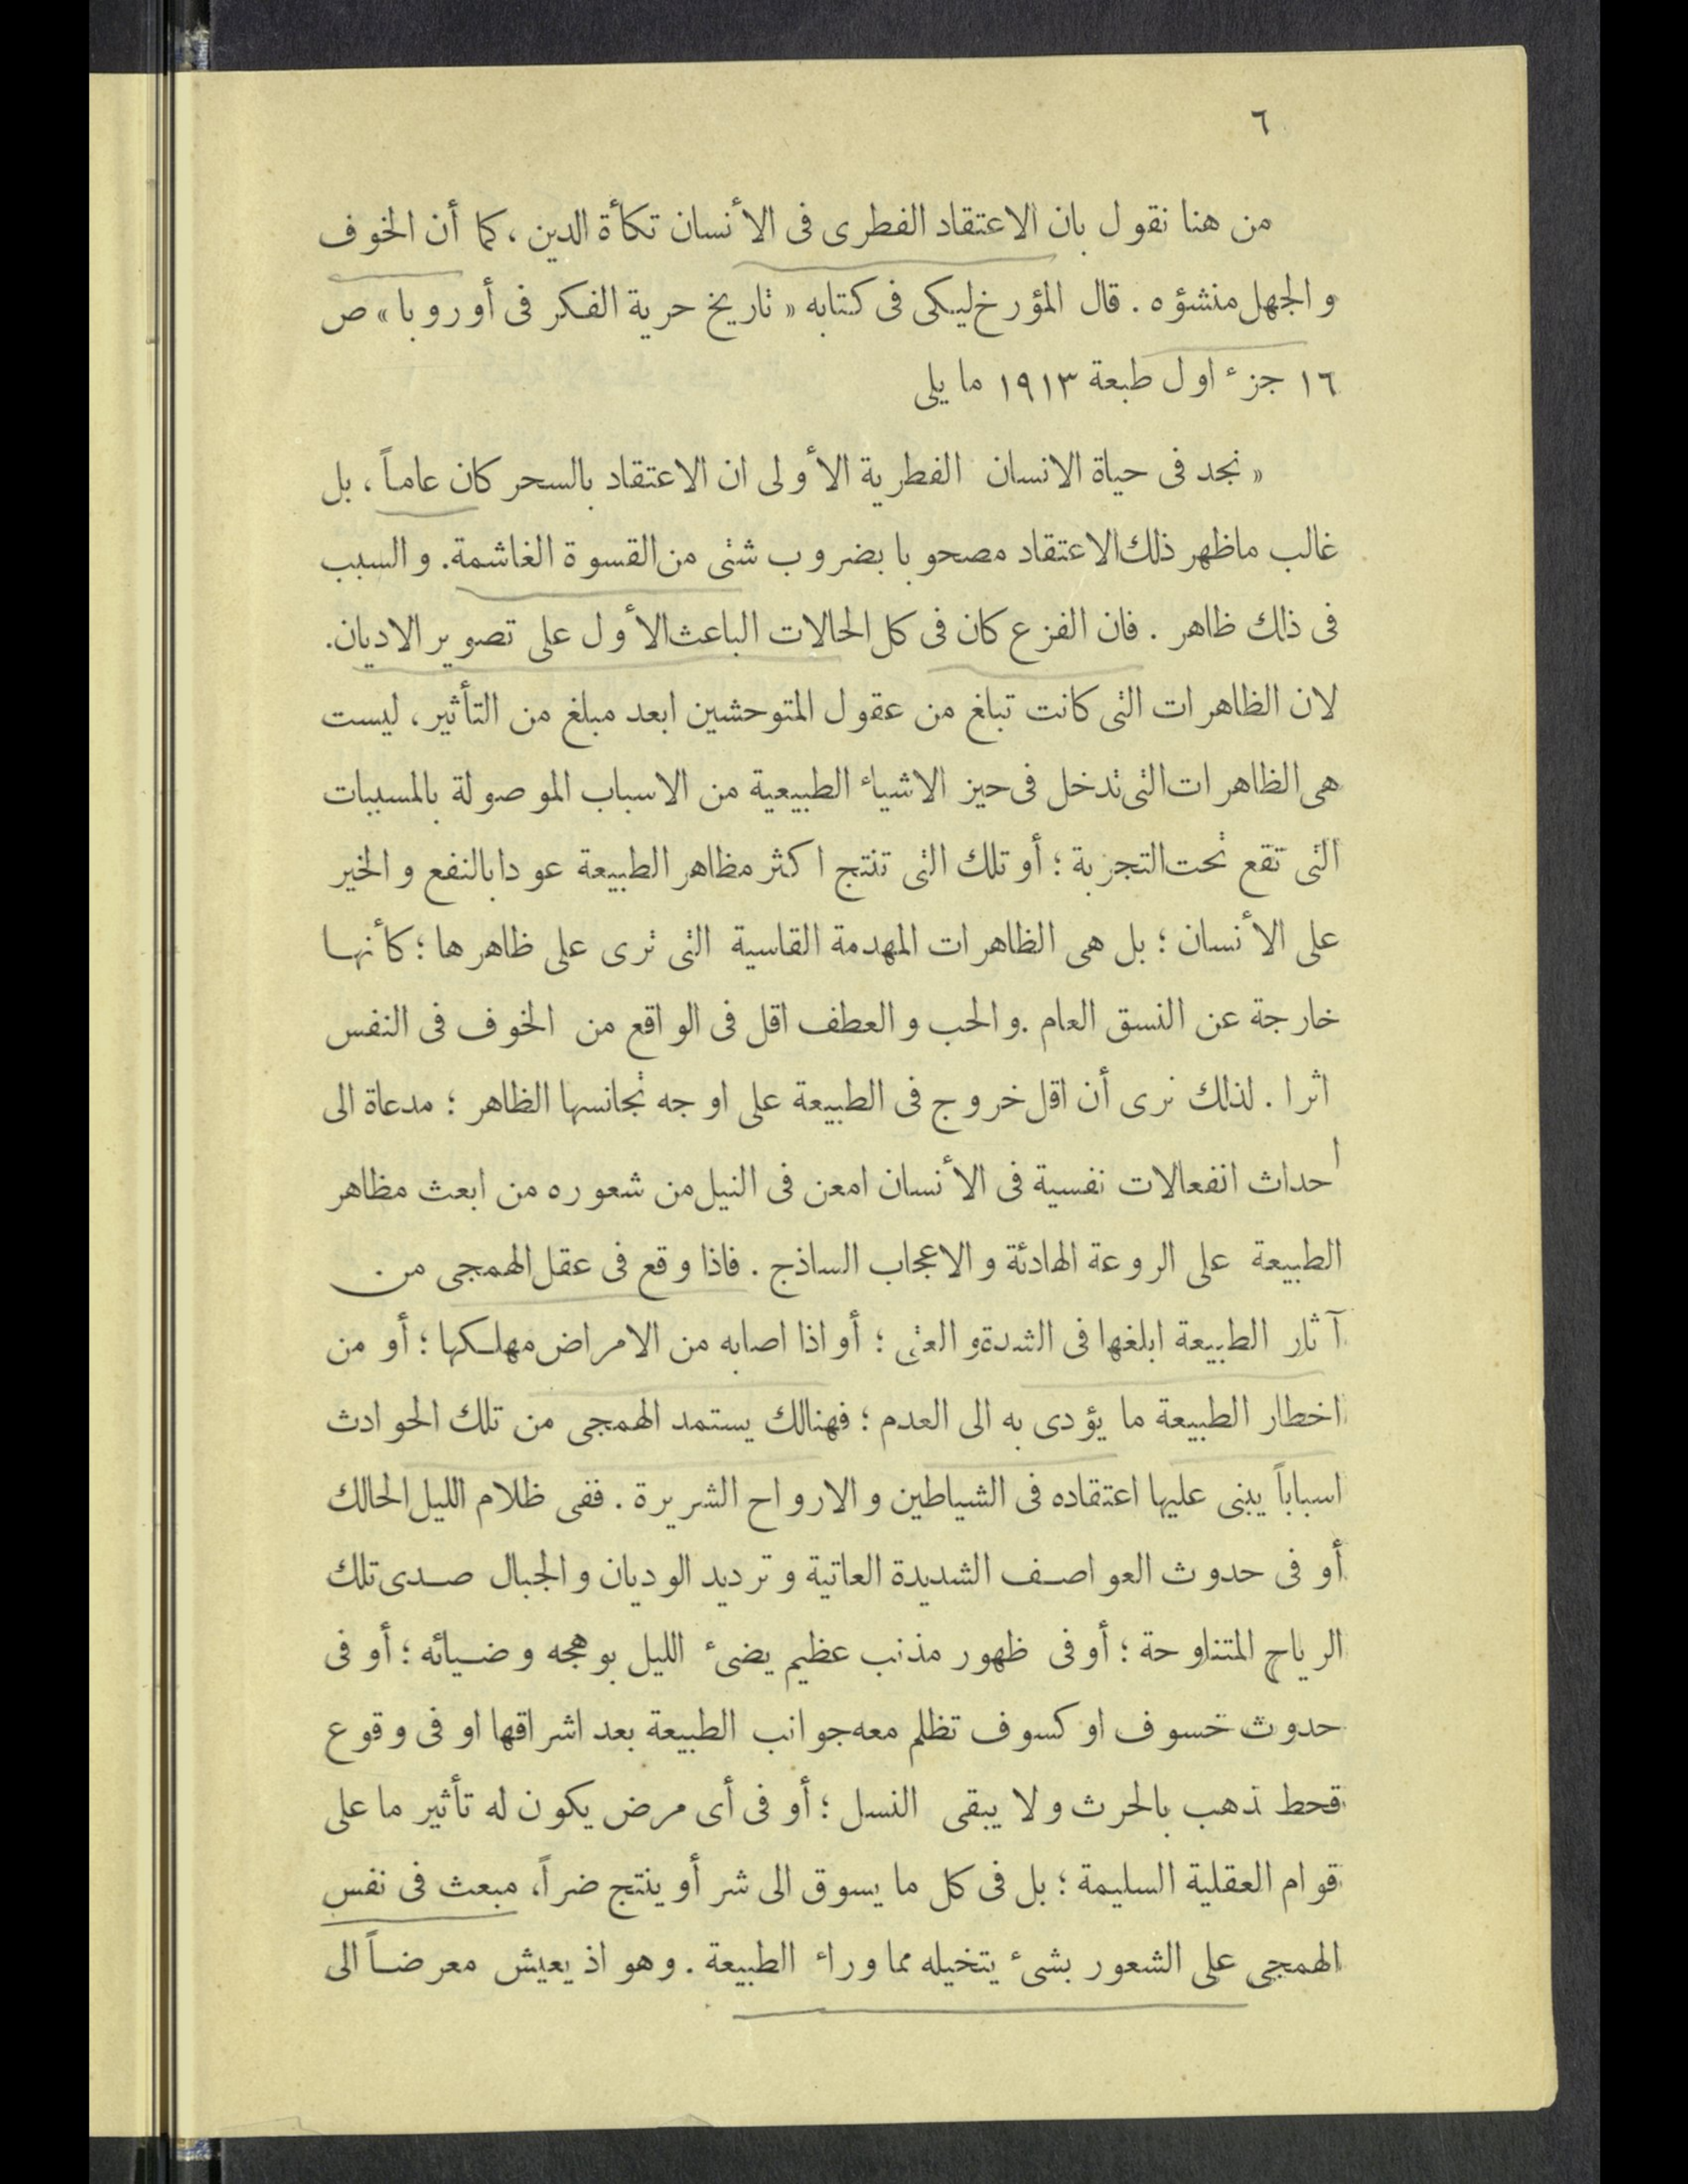 ٦
من هنا نقول بان الاعتقاد الفطرى فى الأنسان تكأة الدين ، كما أن الخوف
والجهل منشؤه . قال المؤرخ ليكى فى كتابه « تاريخ حرية الفكر فى أوروبا » ص
١٦ جزء اول طبعة ١٩١٣ ما يلى
« نجد فى حياة الانسان الفطرية الأولى ان الاعتقاد بالسحر كان عاماً ، بل
غالب ماظهر ذلك الاعتقاد مصحوبا بضروب شتى من القسوة الغاشمة. والسبب
فى ذلك ظاهر . فان الفزع كان فى كل الحالات الباعث الأول على تصوير الاديان.
لان الظاهرات التى كانت تبلغ من عقول المتوحشين ابعد مبلغ من التأثير ، ليست
هى الظاهرات التى تدخل فى حيز الاشياء الطبيعية من الاسباب الموصولة بالمسببات
التى تقع تحت التجربة ؛ أو تلك التى تنتج اكثر مظاهر الطبيعة عودا بالنفع والخير
على الأنسان ؛ بل هى الظاهرات المهدمة القاسية التى ترى على ظاهرها ؛ كأنها
خارجة عن النسق العام . والحب والعطف اقل فى الواقع من الخوف فى النفس
اثرا . لذلك نرى أن اقل خروج فى الطبيعة على اوجه تجانسها الظاهر ؛ مدعاة الى
احداث انفعالات نفسية فى الأنسان امعن فى النيل من شعوره من ابعث مظاهر
الطبيعة على الروعة الهادئة والاعجاب الساذج . فاذا وقع فى عقل الهمجى من
آثار الطبيعة ابلغها فى الشدة و العتى ؛ أو اذا اصابه من الامراض مهلكها ؛ أو من
اخطار الطبيعة ما يؤدى به الى العدم ؛ فهنالك يستمد الهمجى من تلك الحوادث
اسباباً يبنى عليها اعتقاده فى الشياطين والارواح الشريرة . ففى ظلام الليل الحالك
أو فى حدوث العواصف الشديدة العاتية وترديد الوديان والجبال صدى تلك
الرياح المتناوحة ؛ أو فى ظهور مذنب عظيم يضىء الليل بوهجه وضيائه ؛ أو فى
حدوث خسوف او كسوف تظلم معه جوانب الطبيعة بعد اشراقها او فى وقوع
قحط ذهب بالحرث ولا يبقى النسل ؛ أو فى أى مرض يكون له تأثير ما على
قوام العقلية السليمة ؛ بل فى كل ما يسوق الى شر أو ينتج ضراً، مبعث فى نفس
الهمجى على الشعور بشىء يتخيله مما وراء الطبيعة . وهو اذ يعيش معرضاً الى